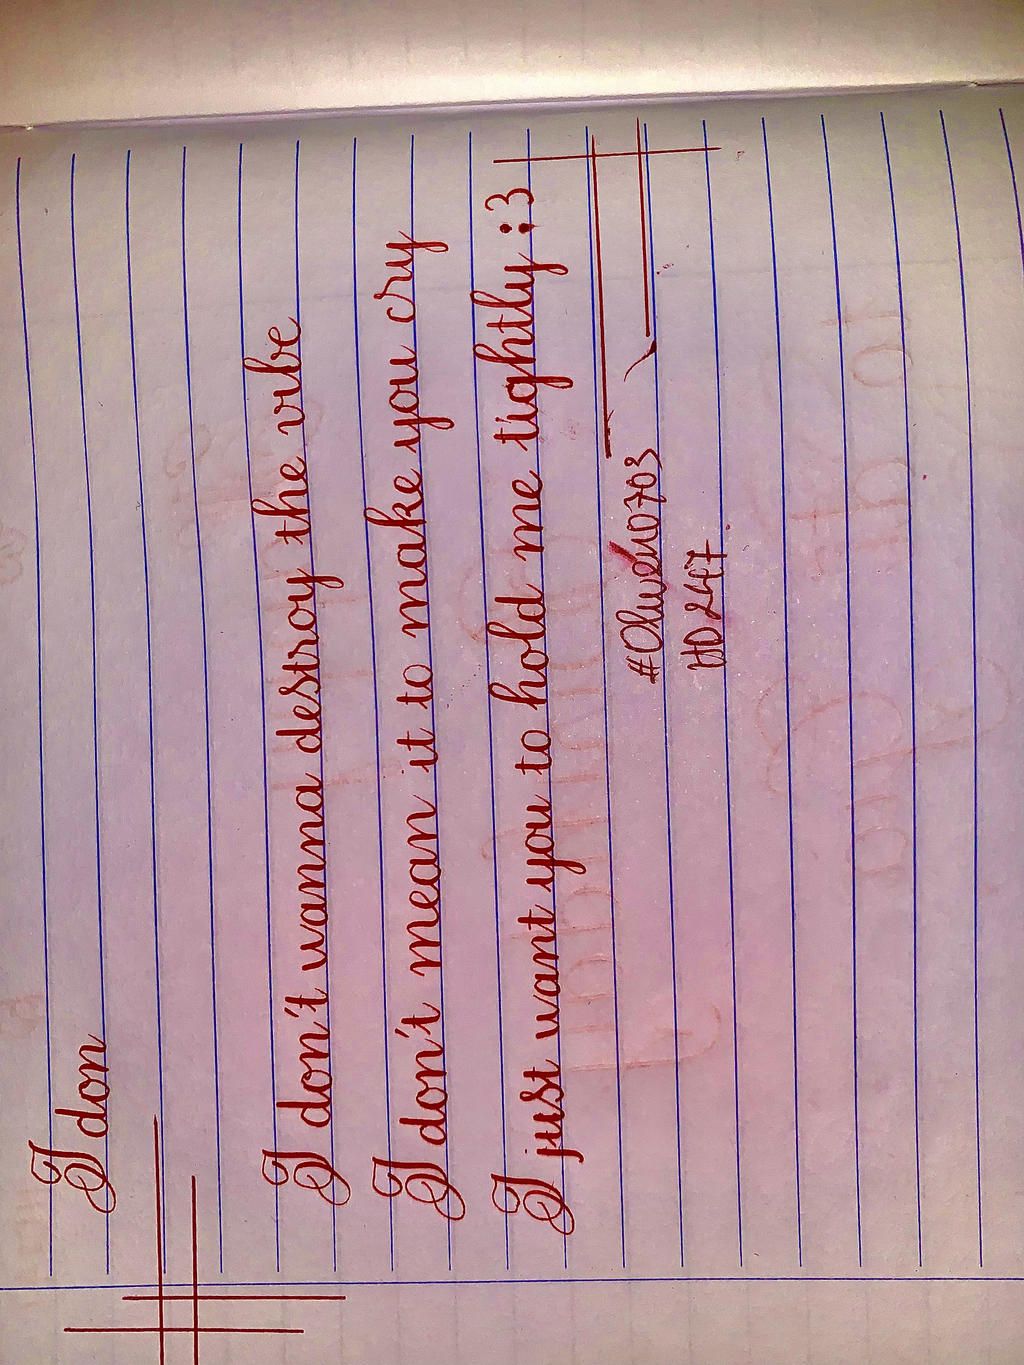 I don
I don't wanna destroy the vibe
I don't mean it to make you cry
I just want you to hold me tightly :3
HD247